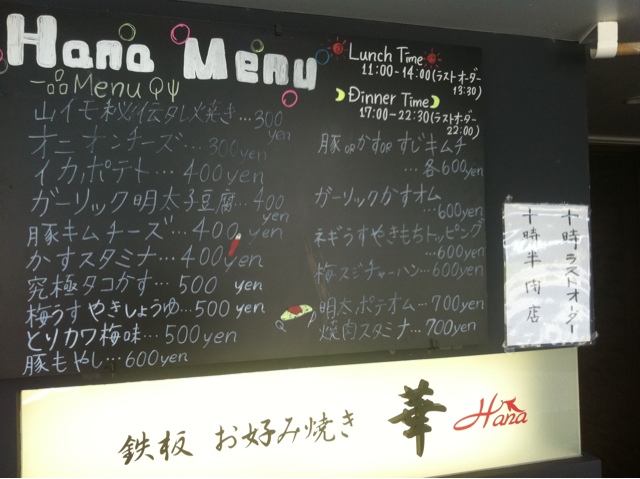 Hana Menu
一品Menu
山イモ秘伝タレ焼き…300yen
オニオンチーズ…300yen
イカポテト…400yen
ガーリック明太子豆腐…400yen
豚キムチーズ…400yen
かすスタミナ…400yen
究極タコかす…500 yen
梅うすやきしょうゆ…500yen
とりカワ梅味…500yen
豚もやし…600yen
Lunch Time
11:00-14:00(ラストオーダー
13:30)
Dinner Time
17:00-22:30(ラストオーダー
22:00)
豚orかすorすじキムチ
…各600yen
ガーリックかすオム
…600yen
ネギうすやきもちトッピング
…600yen
梅スジチャーハン…600yen
明太ポテオム…700yen
焼肉スタミナ…700yen
十時ラストオーダー
十時半閉店
鉄板 お好み焼き 華 Hana